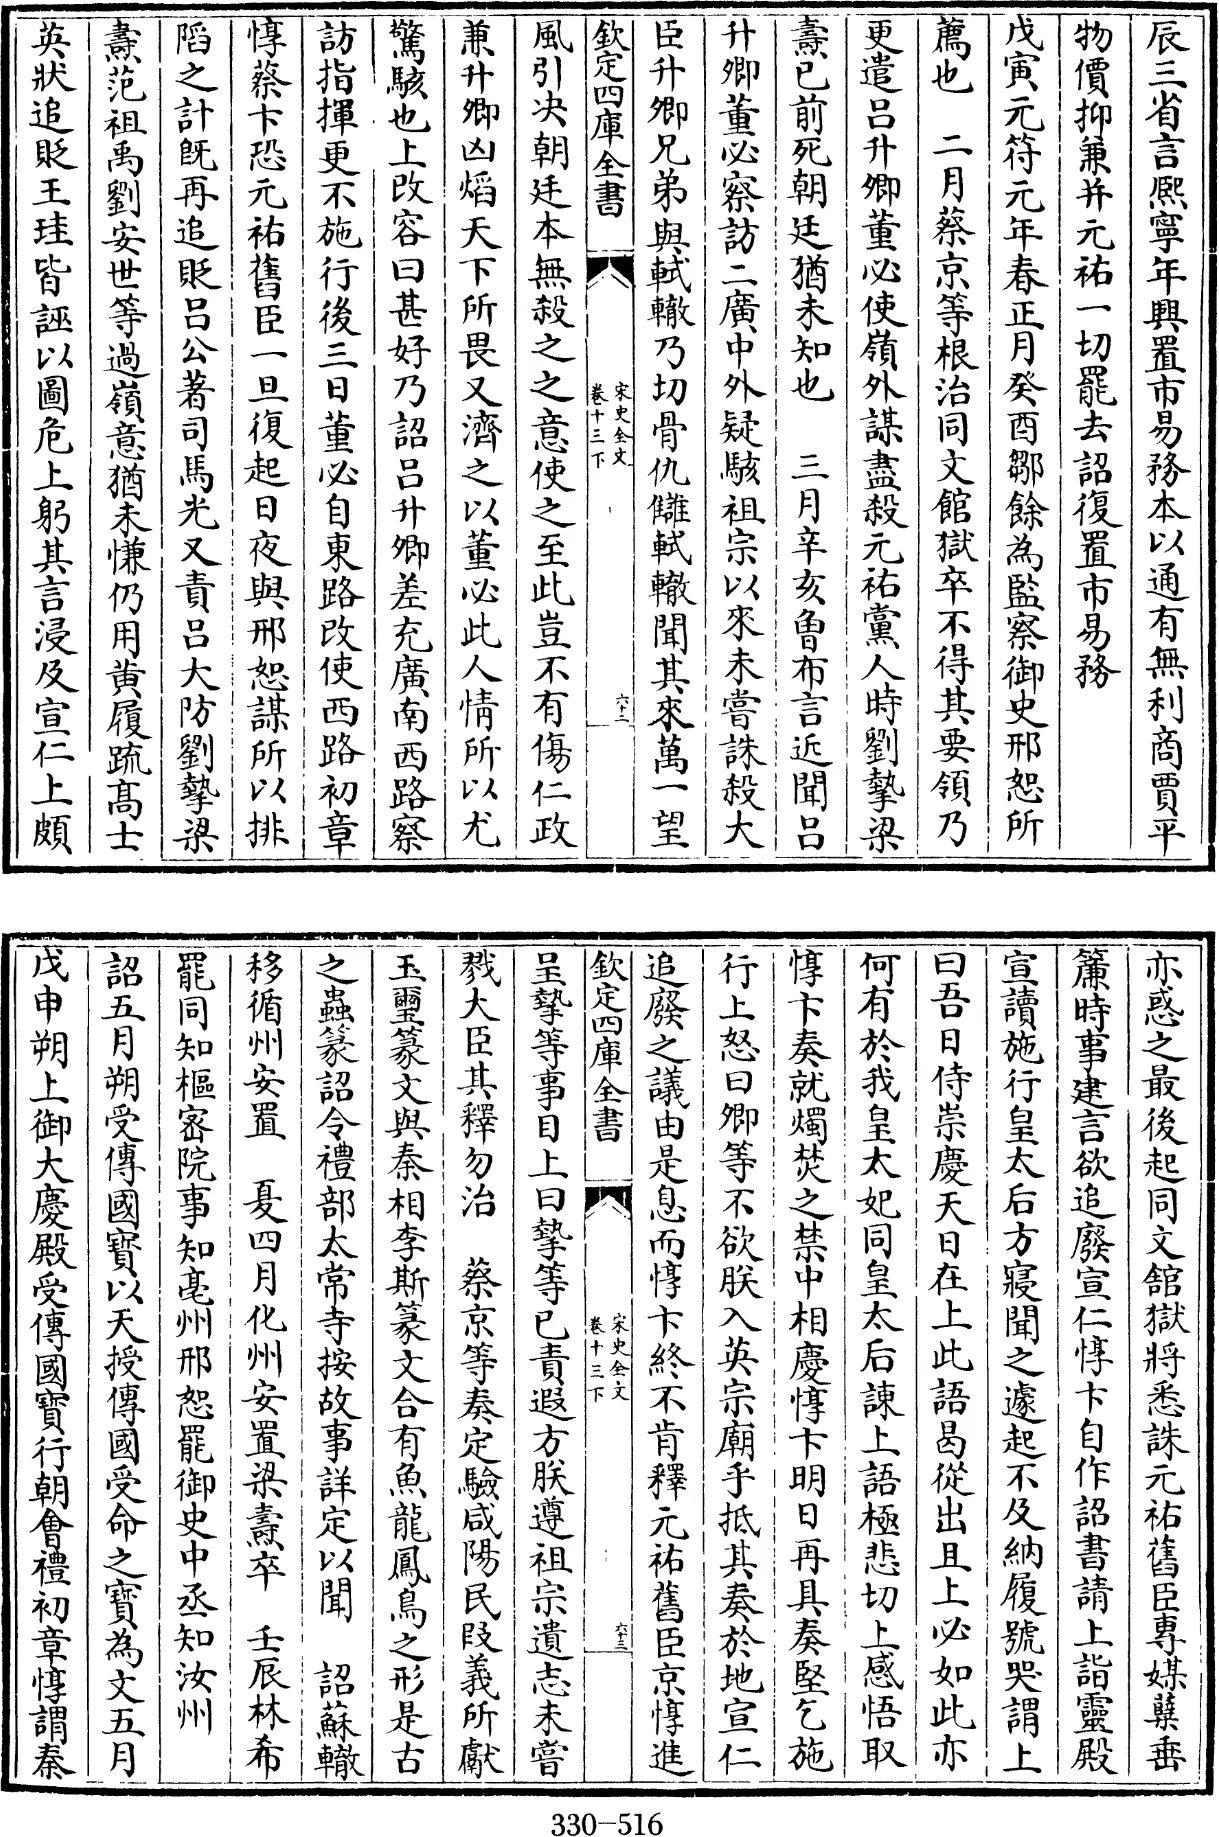 辰三省言熈寧年興置市易務本以通有無利商賈平
物價抑兼并元祐一切罷去詔復置市易務
戊寅元符元年春正月癸酉鄒餘為監察御史邢恕所
薦也　二月蔡京等根治同文館獄卒不得其要領乃
更遣呂升卿董必使嶺外謀盡殺元祐黨人時劉摯梁
燾已前死朝廷猶未知也　三月辛亥魯布言近聞呂
升卿董必察訪二廣中外疑駭祖宗以來未嘗誅殺大
臣升卿兄弟與軾轍乃切骨仇讎軾轍聞其來萬一望
欽定四庫全書
宋史全文
卷十三下
六十二
風引决朝廷本無殺之之意使之至此豈不有傷仁政
兼升卿凶焰天下所畏又濟之以董必此人情所以尤
驚駭也上改容曰甚好乃詔呂升卿差充廣南西路察
訪指揮更不施行後三日董必自東路改使西路初章
惇蔡卞恐元祐舊臣一旦復起日夜與邢恕謀所以排
陷之計既再追貶呂公著司馬光又責呂大防劉摯梁
燾范祖禹劉安世等過嶺意猶未慊仍用黄履疏髙士
英狀追貶王珪皆誣以圖危上躬其言浸及宣仁上頗
亦惑之最後起同文舘獄將悉誅元祐舊臣專媒蘖垂
簾時事建言欲追廢宣仁惇卞自作詔書請上詣靈殿
宣讀施行皇太后方寢聞之遽起不及納履號哭謂上
曰吾日侍崇慶天日在上此語曷從出且上必如此亦
何有於我皇太妃同皇太后諫上語極悲切上感悟取
惇卞奏就燭焚之禁中相慶惇卞明日再具奏堅乞施
行上怒曰卿等不欲朕入英宗廟乎抵其奏於地宣仁
追廢之議由是息而惇卞終不肯釋元祐舊臣京惇進
欽定四庫全書
宋史全文
卷十三下
六十三
呈摯等事目上曰摯等已責遐方朕遵祖宗遺志未嘗
戮大臣其釋勿治　蔡京等奏定驗咸陽民段義所獻
玉璽篆文與秦相李斯篆文合有魚龍鳳鳥之形是古
之蟲篆詔令禮部太常寺按故事詳定以聞　詔蘇轍
移循州安置　夏四月化州安置梁燾卒　壬辰林希
罷同知樞密院事知亳州邢恕罷御史中丞知汝州
詔五月朔受傳國寳以天授傳國受命之寳為文五月
戊申朔上御大慶殿受傳國寳行朝會禮初章惇謂秦
330-516